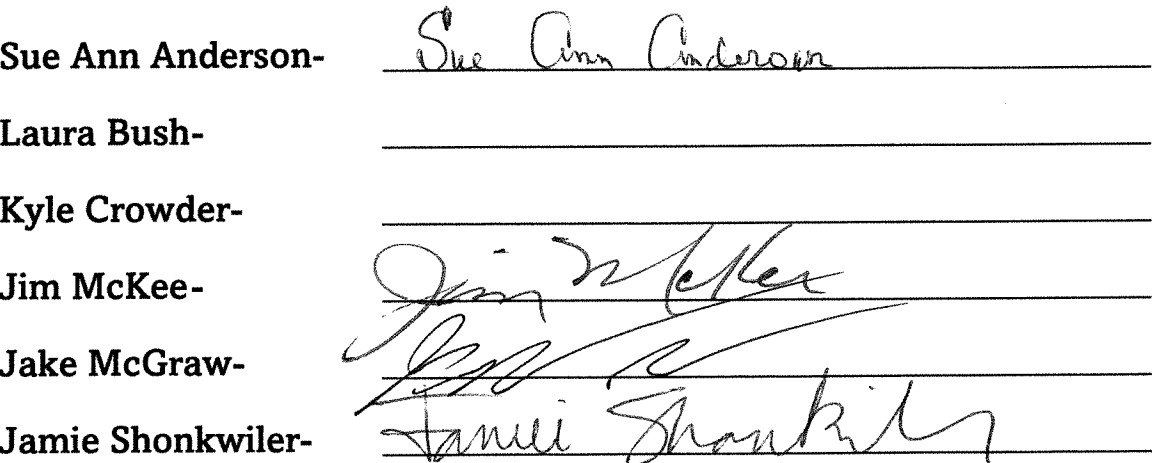 Sue Ann Anderson- Sue Ann Anderson
Laura Bush-
Kyle Crowder-
Jim McKee- Jim McKee
Jake McGraw-
Jamie Shonkwiler- Jamie Shonkwiler